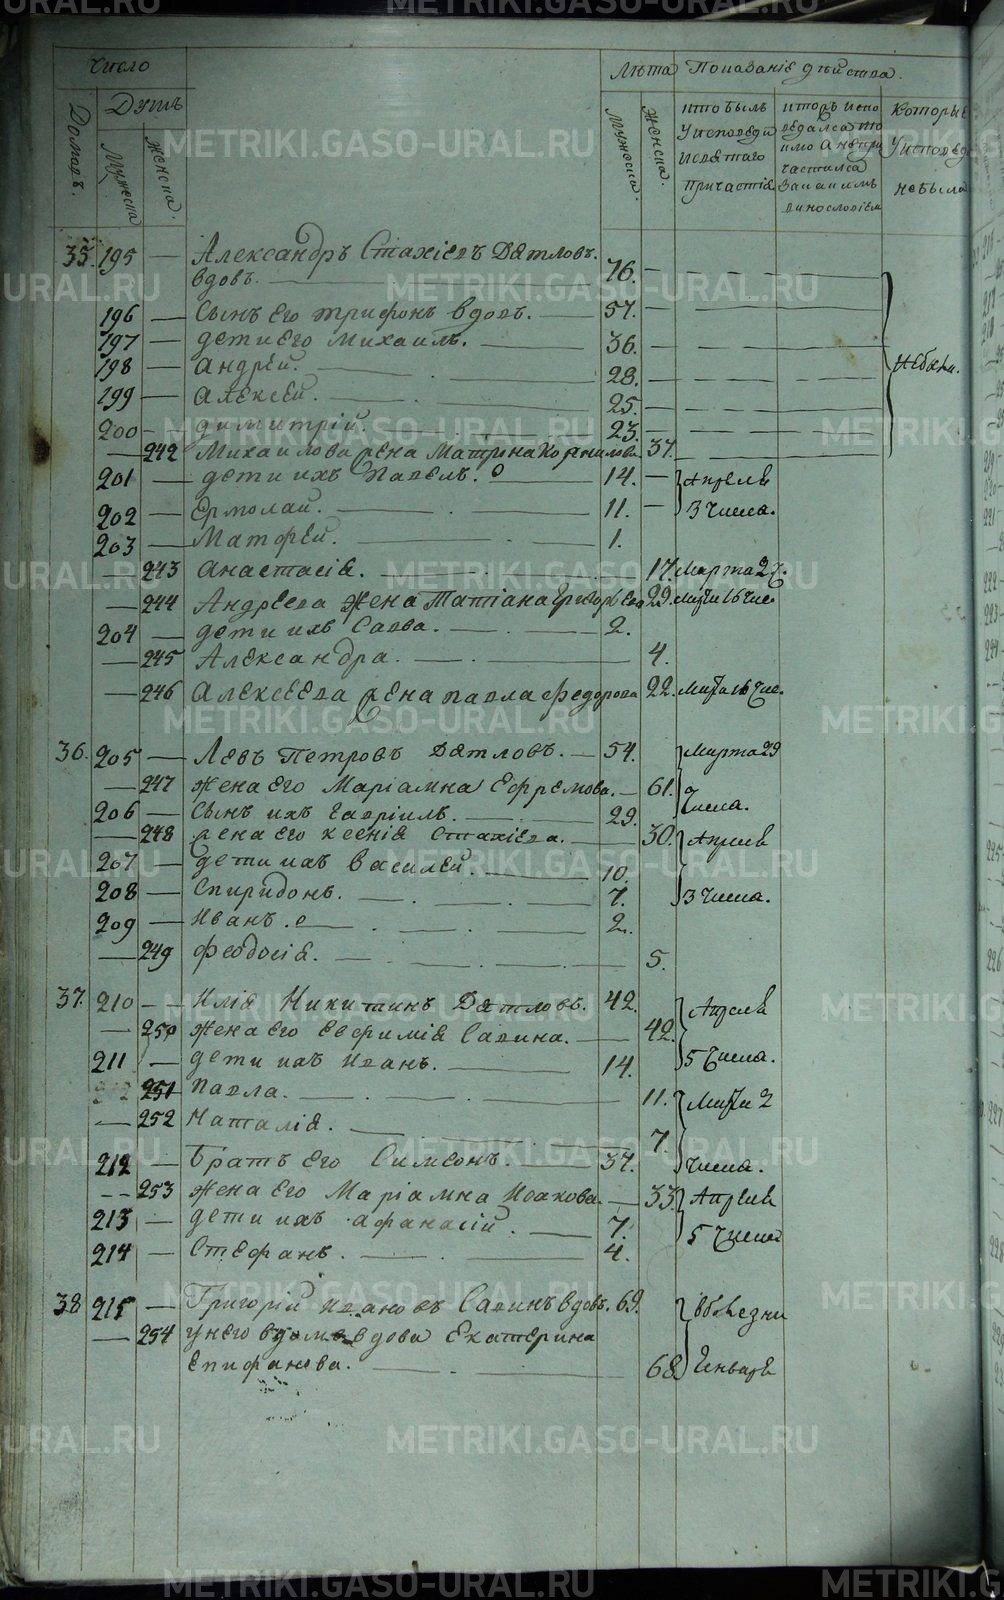 Число
Лѣта Показанiе дѣйства.
Домовъ.
Душъ
Мужеска
Женска.
Мужеска.
Женска.
кто былъ
У исповеди
И святаго
причастiя
которые
У исповед
небыли
35. 195 — Александръ Стахiевъ Дятловъ.
вдовъ. 76. —
196 — Сынъ Его трифонъ вдовъ. 57. —
197 — дети Его Михаилъ. 36. —
198 — Андрей. 28. —
небыли.
199 — Алексей. 25. —
200 — димитрiй. 23. —
— 242 Михаилова жена Матрона Корнилова 37.
201 — дети ихъ Павелъ. 14. — Апреля
202 — Ермолай. 11. — 3 числа.
203 — Матфей. 1.
— 243 Анастасiя. 17. Марта 27.
— 244 Андреева жена Татiана Григорьева 29. Марта 16 чис
204 — дети ихъ Савва. 2.
— 245 Александра. 4.
— 246 Алексеева жена павла Федорова 22. Марта 16 чис.
36. 205 — Левъ Петровъ Дятловъ. 54. Марта 29
— 247 Жена Его Марiамна Ефремова. 61. Числа.
206 — Сынъ ихъ Гаврiилъ. 29.
— 248 жена Его Ксенiя Стахiева. 30. Апреля
207 — дети ихъ Василей. 10.
208 — Спиридонъ. 7. 3 числа.
209 — Иванъ. 2.
— 249 Феодосiя. 5.
37. 210 — Илiя Никитинъ Дятловъ. 42. Апреля
— 250 Жена Его Евфимiя Савина. 42.
211 — дети ихъ Иванъ. 14. 5 Числа.
251 Павла. 11. Марта 2
— 252 Наталiя. 7.
212 — Братъ Его Симеонъ. 37. Числа.
— 253 Жена Его Марiамна Исакова. 33. Апреля
213 — дети ихъ афанасiй. 7. 5 Числа
214 — Стефанъ. 4.
38 215 — Григорiй Ивановъ Савинъ вдовъ. 69. вболезни
— 254 у него вдоме вдова Екатерина
Епифанова. 68. Генваря
METRIKI.GASO-URAL.RU